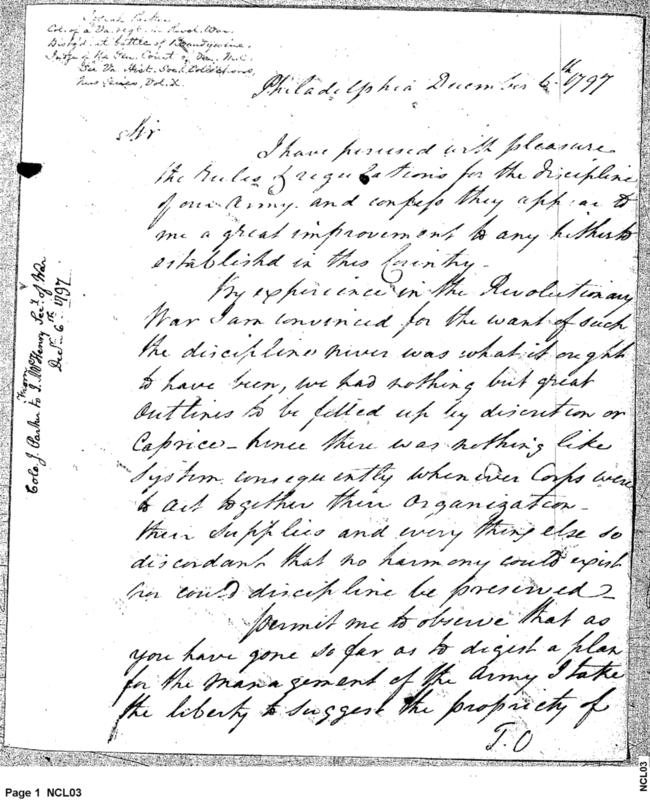 Josiah Parker
Col. of a Va. regt. in Revol. War.
at battle of Brandywine.
Va. Hist. Soc. Collections,
New Series, Vol. X.
Philadelphia December 6th 1797
Sir
I have perused with pleasure
the Rules & regulations for the discipline
of our Army. and confess they appear to
me a great improvement to any hitherto
established in this Country.
By experience in the Revolutionary
War I am convinced for the want of such
the discipline never was what it ought
to have been, we had nothing but great
Outlines to be filled up by discretion or
Caprice - hence there was nothing like
System, consequently whenever Corps were
to act together their organization -
their Supplies and every thing else so
discordant that no harmony could exist
nor could discipline be preserved -
permit me to observe that as
you have gone so far as to digest a plan
for the management of the Army I take
the liberty to suggest the propriety of
T.O
From
Colo. J. Parker to J. McHenry Secy. of War
Decr. 6th 1797
Page 1 NCL03
NCL03